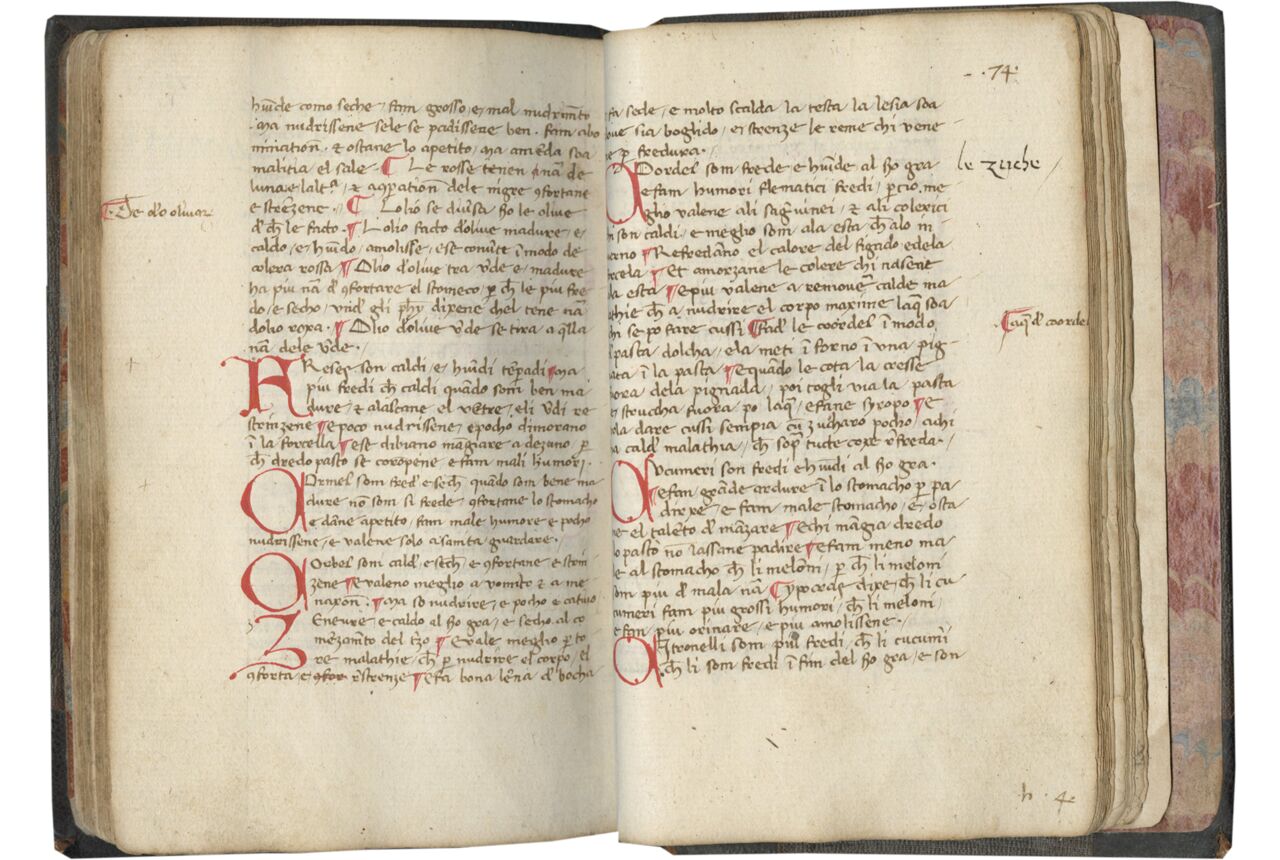 hũide como seche / fam grosso / e mal nudrim̃to
ma nudrissene sele se padissene ben . fam cibo
& ostane lo apetito / ma amẽda soa
malitia el sale . Le rosse tenen nãa de
luna e laltᵃ / & dele nigre ꝯfortane
De olo oliuar
e strẽzene . Lolio se diuisa so le oliue
d' ch̃ le facto . Lolio facto doliue madure / e
caldo / e hũido / amolisse / e se conũte ĩ modo de
colera rossa Olio d'oliue tra ṽde e madure
ha piu nãa d' ꝯfortare el stomeco / p ch̃ le piu fre
do / e secho / vnd' gli phỹ dixene chel tene nãa
dolio roxa . Olio d'oliue ṽde se tira a q̃lla
nãa dele ṽde .
FReses son caldi / e hũidi tẽpadi ma
piu fredi ch̃ caldi quãdo som̃ ben ma
dure / & alascane el vẽtre / eli ṽdi re
strinzene e poco nudrissene / e pocho dimorano
ĩ la forcella e se dibiano mãgiare a dezuno / p
ch̃ dredo pasto se coropene / e fam mali humori .
COrmel som fred' e sech̃ / quãdo som bene ma
dure nõ som si frede ꝯfortane lo stomacho
e dãne apetito / fam male humore e pocho
nudrissene / e valene solo a sanita guardare .
COrbel som cald' / e sech̃ / e ꝯfortane / e strin
zene E valeno meglio a vomito & a me
naxon . Ma so nudrire / e pocho e catiuo
ZEneure e caldo al so gra / e secho al co
mẽzam̃to del t̃zo E vale meglio p to
re malathie / ch̃ p nudrire el corpo / el
ꝯforta / e r̃strenze e fa bona lẽna d' bocha
74
fa sede / e molto scalda la testa la lesia soa
oue sia boglido / e strenze le reme chi vene
p fredura .
le zuche
COordel som frede e hũide al so gra
e fam humori flematici fredi / p cio me
glio valene ali sag̃uinei / & ali colexici
son caldi / e meglio som ala esta ch̃ alo in
uerno Refredãno el calore del figado e dela
forcela Et amorzane le colere chi nasene
la esta e piu valene a remoueṽ calde ma
lathie ch̃ a nudrire el corpo maxime laq̃ soa
chi se po fare cussi fad' le coordel ĩ modo
Laq̃ d' coordel
d' pasta dolcha / e la meti ĩ forno ĩ vna pig
nata ĩ la pasta e quãdo le cota la cresse
fuora dela pignada / poi togli via la pasta
e struccha fuora po laq̃ / e fane syropo E
la dare cussi sempia cũ zucharo pocho / a chi
ha cald' malathia / ch̃ sop̃ tucte coxe r̃freda .
CVcumeri son fredi e hũidi al so gra .
e fan grãde ardure ĩ lo stomacho p pa
dixe / e fam male stomacho / e osta
ne el talẽto d' mãzare e chi mãgia dredo
lo pasto no lassane padire e fam meno ma
le al stomacho ch̃ li melõni / p ch̃ li meloni
som piu d' mala nãa ypocras dixe / ch̃ li cu
cumeri fam piu grossi humori / ch̃ li meloni /
e fan piu orinare / e piu amolissene .
CItronelli som piu fredi / ch̃ li cucumi
ch̃ li som fredi ĩ fin del so gra / e son
h . 4